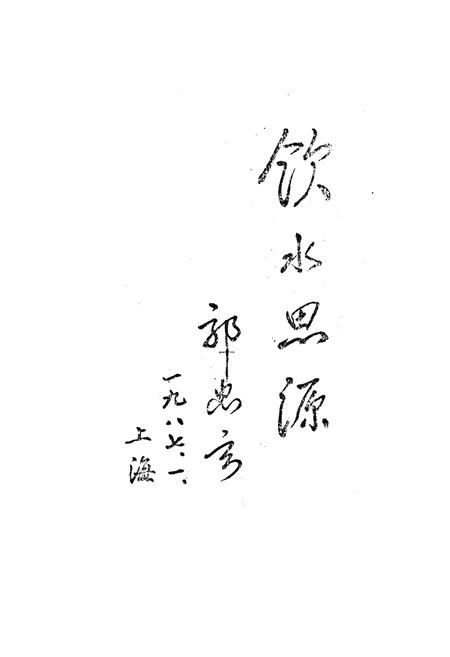 飲水思源
郭忠言
一九八七.一.
上海